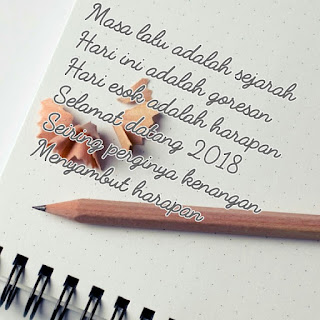 Masa lalu adalah sejarah
Hari ini adalah goresan
Hari esok adalah harapan
Selamat datang 2018
Seiring perginya kenangan
Menyambut harapan